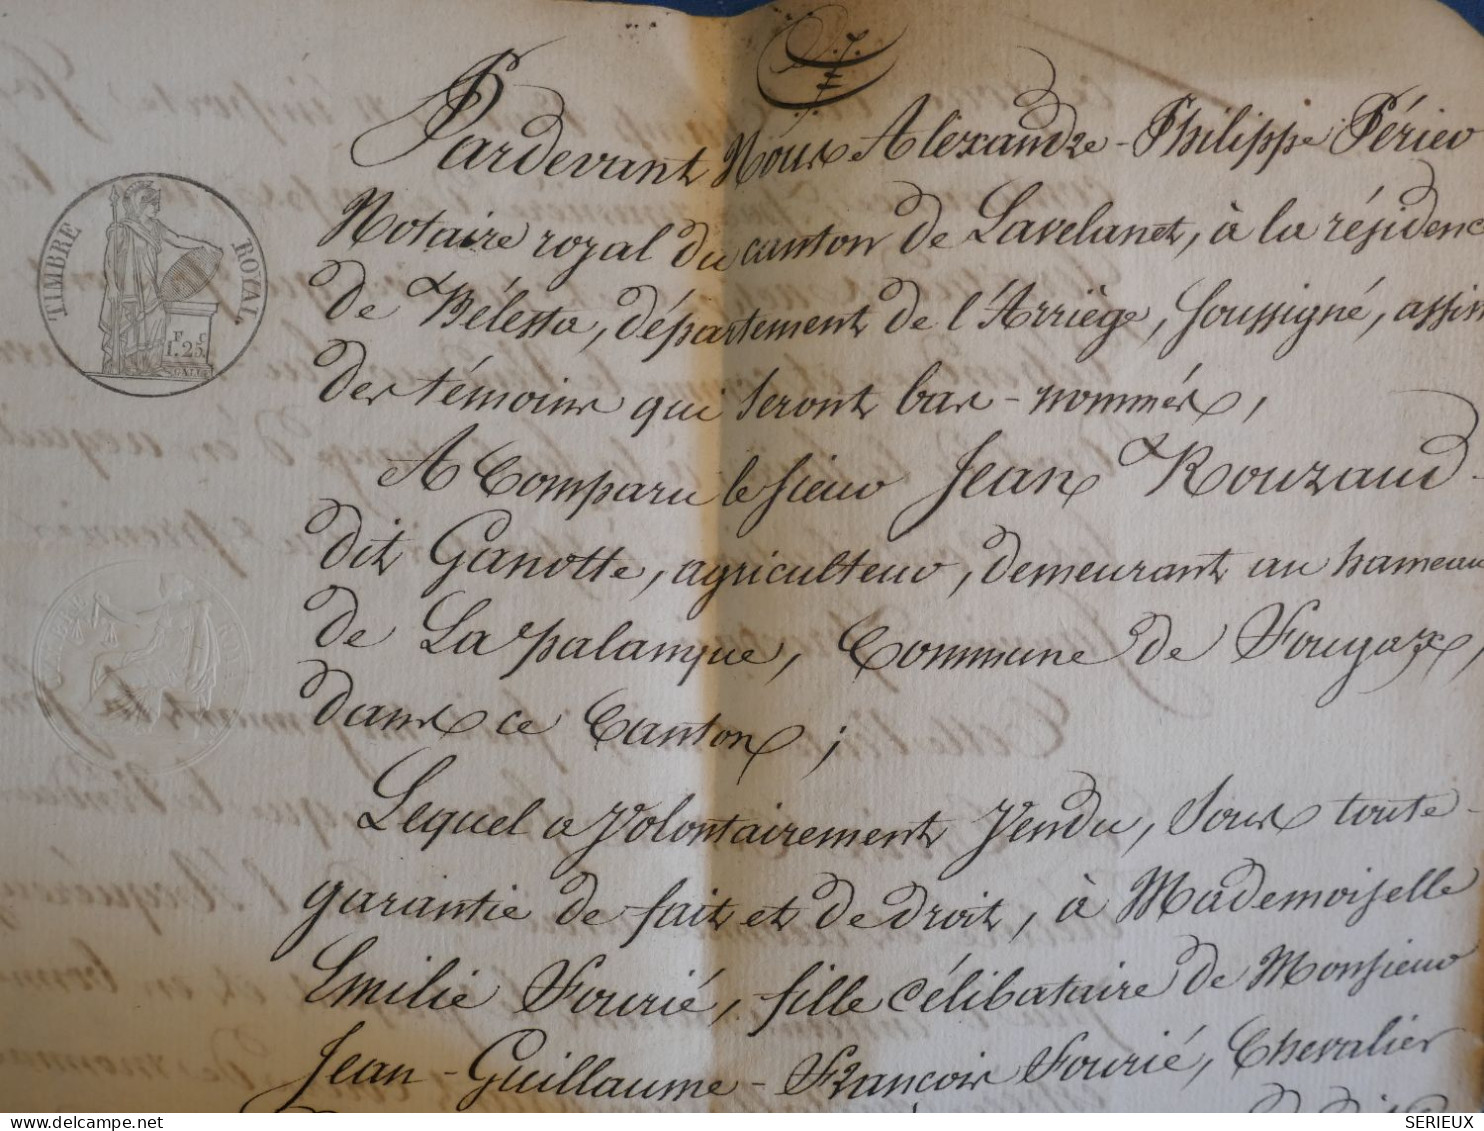 Pardevant Nous Alexandre-Philippe Périer
Notaire royal du canton de Lavelanet, à la résidenc
de Bélesta, département de l'Arriège, soussigné, assis
des témoins qui seront bas-nommés,
A Comparu le sieur Jean Rouzaud
dit Ganotte, agriculteur, demeurant au hameau
de La palanque, Commune de Fougax,
dans ce Canton;
Lequel a volontairement Vendu, sous toute
garantie de fait et de droit, à Mademoiselle
Emilie Fourié, fille célibataire de Monsieur
Jean-Guillaume-François Fourié, Chevalier
TIMBRE ROYAL
F. C
1.25.
SERIEUX / DELCAMPE.NET